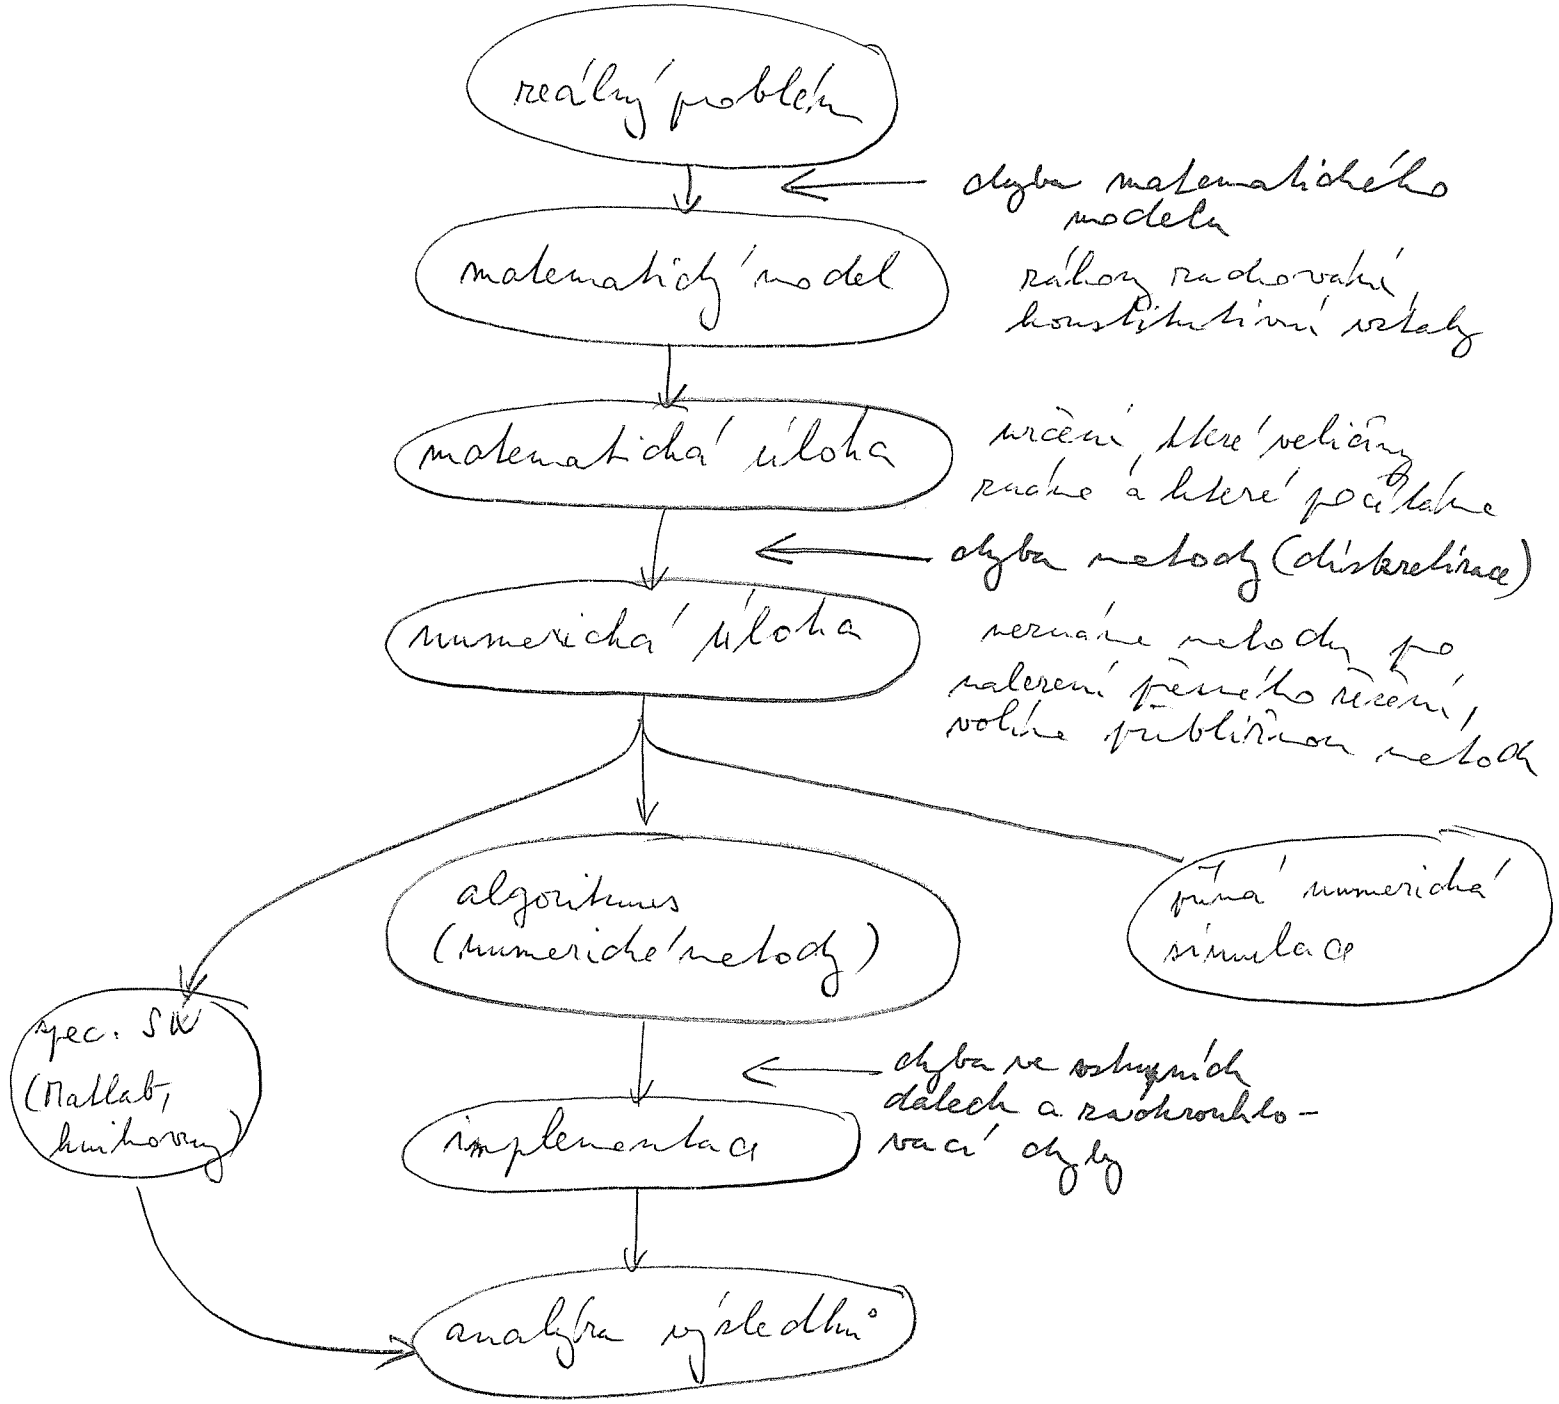 reálný problém
chyba matematického
modelu
matematický model
zákony zachování,
konstitutivní vztahy
matematická úloha
určení, které veličiny
známe a které počítáme
chyba metody (diskretizace)
numerická úloha
neznáme metody po
nalezení přesného řešení,
volíme přibližnou metodu
algoritmus
(numerické metody)
přímá numerická
simulace
spec. SW
(Matlab,
knihovny)
chyba ve vstupních
datech a zaokrouhlo-
vací chyby
implementace
analýza výsledků